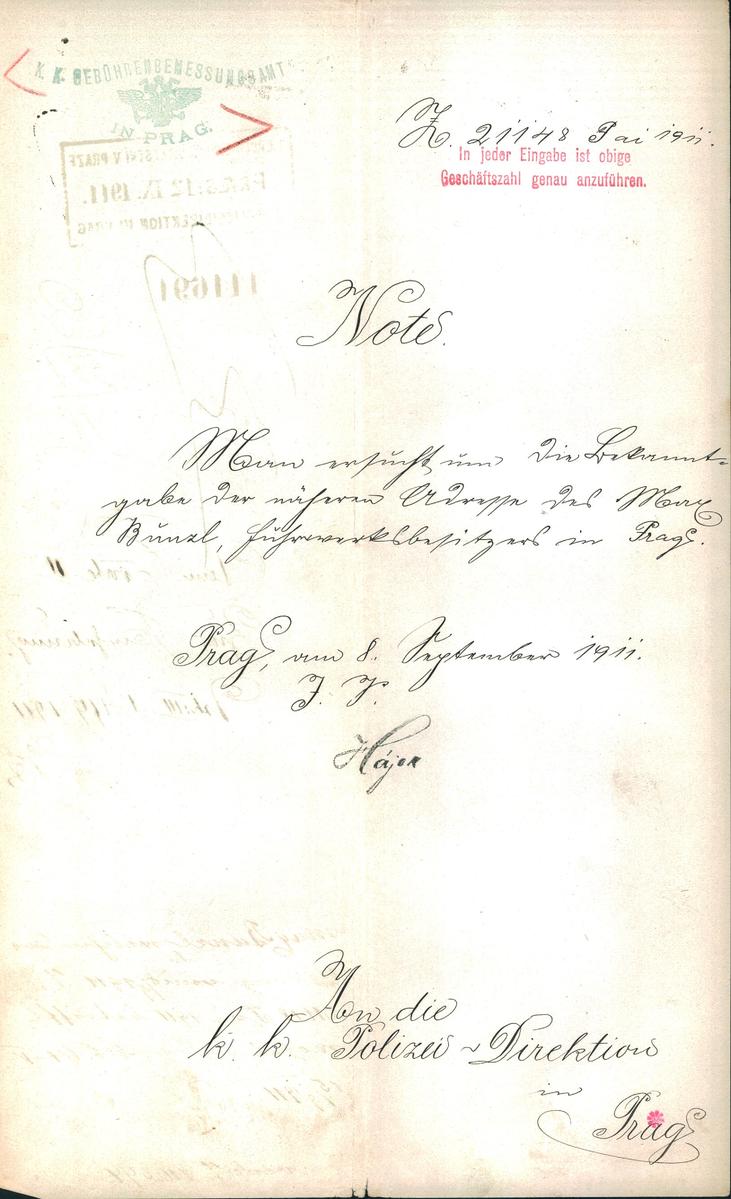 K. K. GEBÜHRENBEMESSUNGSAMT
IN PRAG.
Z. 21148 Pai 1911.
In jeder Eingabe ist obige
Geschäftszahl genau anzuführen.
Note.
Man ersucht um die Bekannt-
gabe der näheren Adresse des Max
Bunzl, Fuhrwerksbesitzers in Prag.
Prag, am 8. September 1911.
Hájek
An die
k. k. Polizei-Direktion
in
Prag